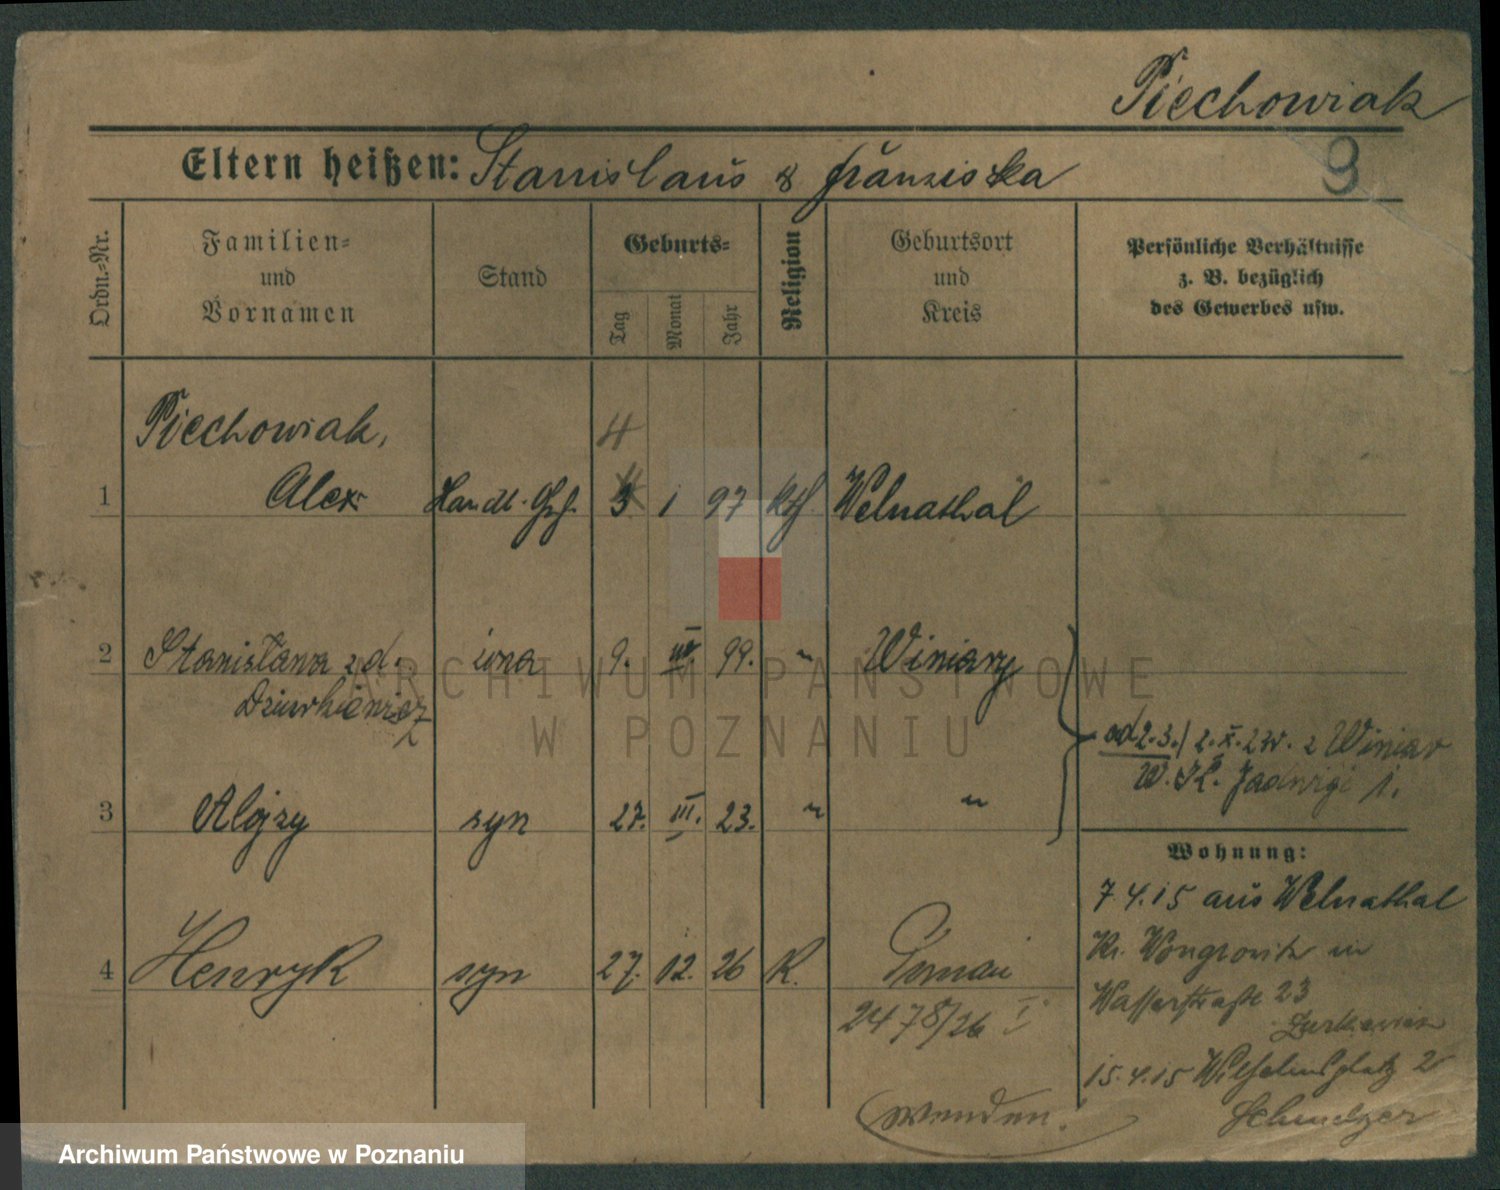 Piechowiak
Eltern heißen: Stanislaus & Franziska
9
Ordn.-Nr.
Familien-
und
Vornamen
Stand
Geburts-
Tag
Monat
Jahr
Religion
Geburtsort
und
Kreis
Persönliche Verhältnisse
z. B. bezüglich
des Gewerbes usw.
Piechowiak,
4
1 Alex Handl. 3 1 97 kth Welnathal
2 Stanisława zd. żona 9. III. 99. " Winiary
od 2.3./ 2.X.27r. z Winiar
W. Kr. Jadwigi 1.
3 Alojzy syn 27. III. 23. " "
Wohnung:
7.4.15 aus Welnathal
Kr. Wongrowitz in
Wasserstraße 23
4 Henryk syn 27. 12. 26 K. Poznań
2478/26 I
15.4.15 Wilhelmsplatz 2
Wenden!
ARCHIWUM PAŃSTWOWE
W POZNANIU
Archiwum Państwowe w Poznaniu